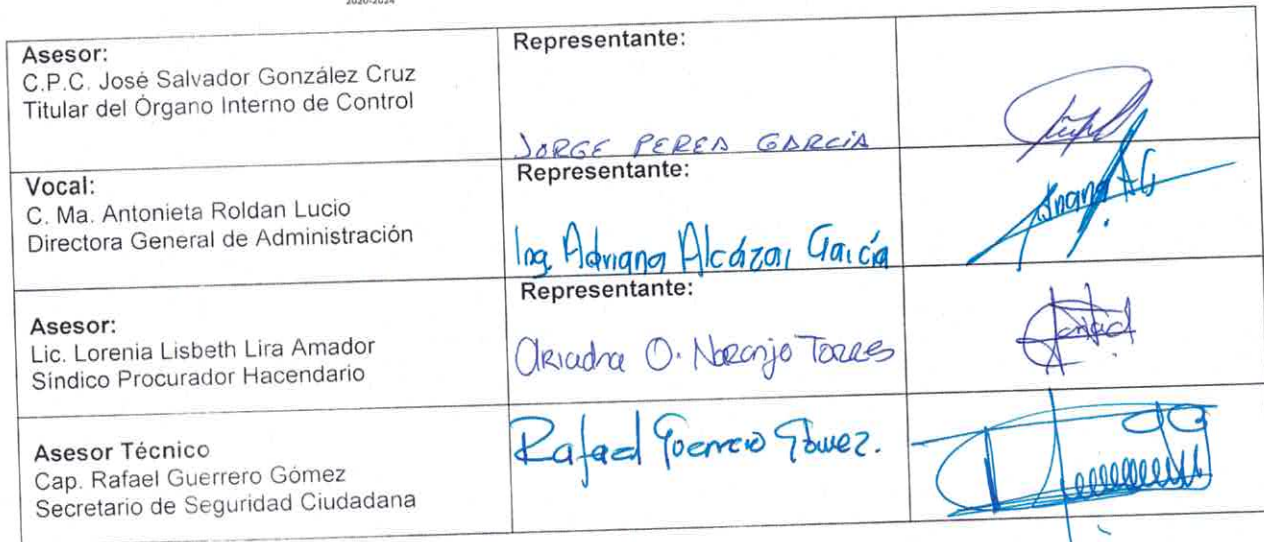 2020-2024
Asesor:
C.P.C. José Salvador González Cruz
Titular del Órgano Interno de Control
Representante:
JORGE PEREA GARCÍA
Vocal:
C. Ma. Antonieta Roldan Lucio
Directora General de Administración
Representante:
Ing. Adriana Alcázar García
Asesor:
Lic. Lorenia Lisbeth Lira Amador
Síndico Procurador Hacendario
Representante:
Ariadna O. Naranjo Torres
Asesor Técnico
Cap. Rafael Guerrero Gómez
Secretario de Seguridad Ciudadana
Rafael Guerrero Gómez.